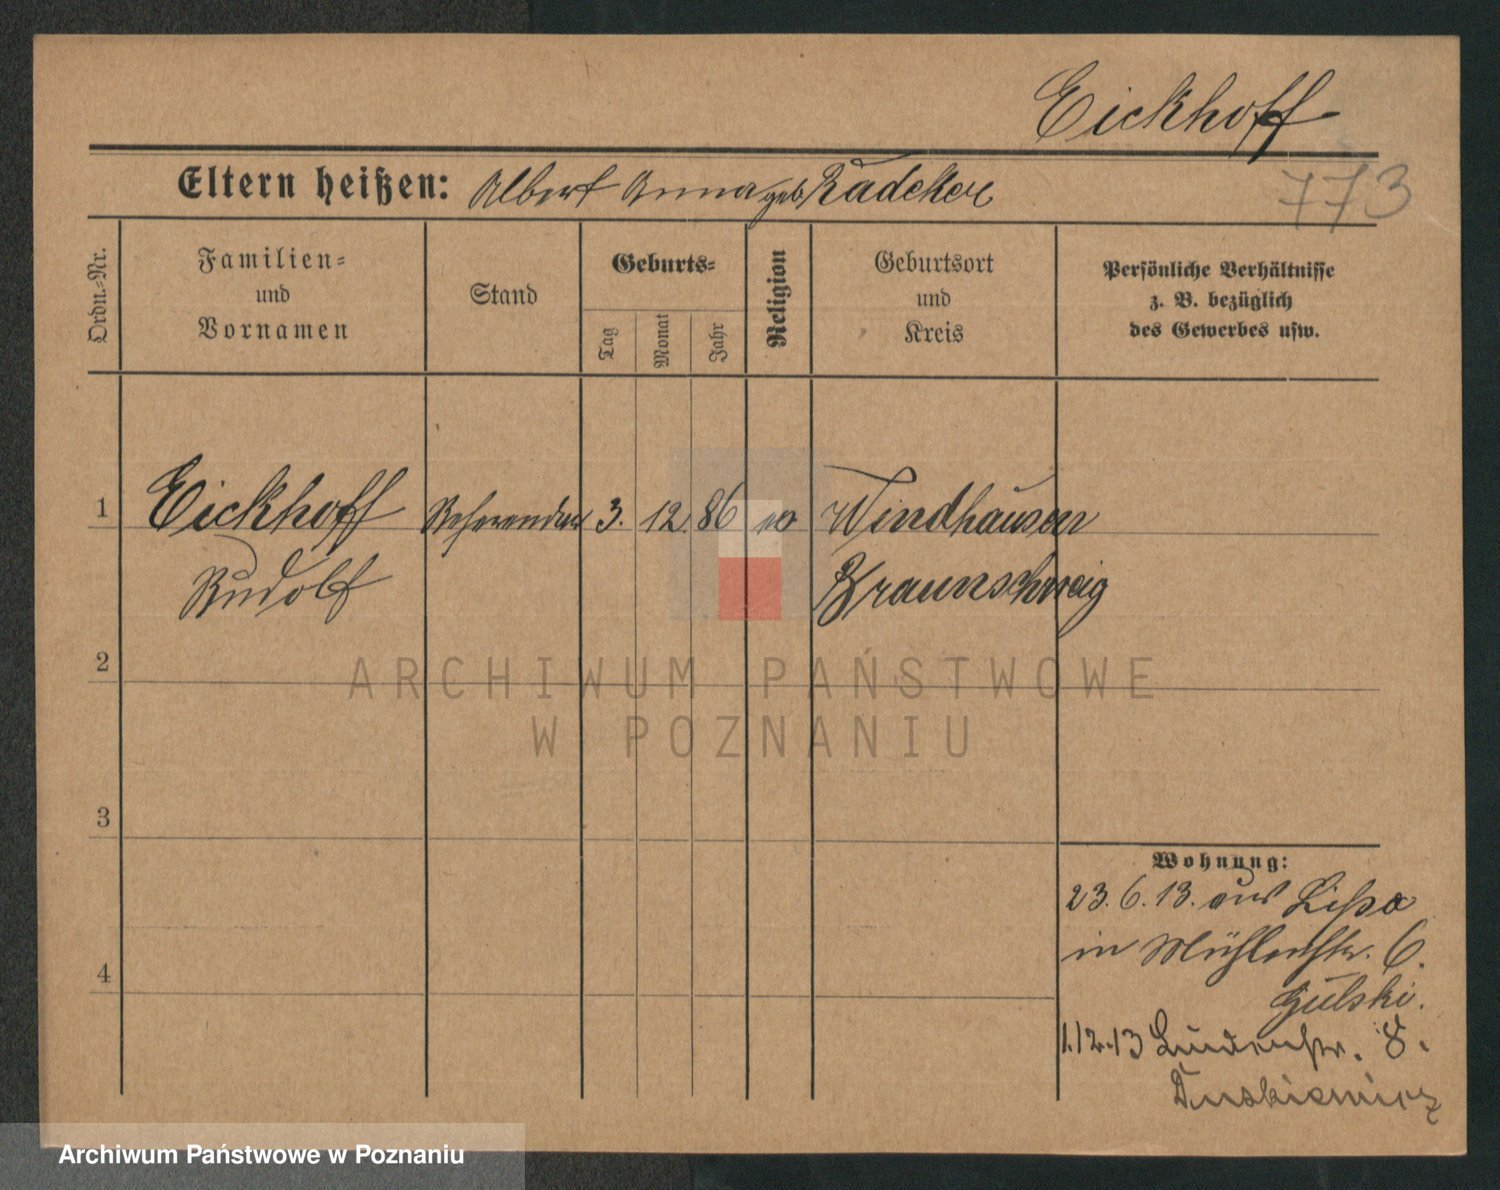 Eickhoff
773
Eltern heißen: Albert Anna geb. Radeker
Ordn.-Nr.
Familien-
und
Vornamen
Stand
Geburts-
Tag
Monat
Jahr
Religion
Geburtsort
und
Kreis
Persönliche Verhältnisse
z. B. bezüglich
des Gewerbes usw.
1 Eickhoff Referendar 3. 12. 86 Windhausen
Rudolf Braunschweig
2
3
4
Wohnung:
23. 6. 13. aus Lissa
in Mühlenstr. 6.
Gulski.
1.12.13 Lindenstr. 8.
ARCHIWUM PAŃSTWOWE
W POZNANIU
Archiwum Państwowe w Poznaniu